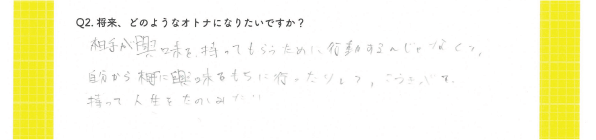 Q2. 将来、どのようなオトナになりたいですか？
相手が興味を持ってもらうために行動するんじゃなくて、
自分から相手に興味をもちに行ったりして、
持って人生をたのしみた